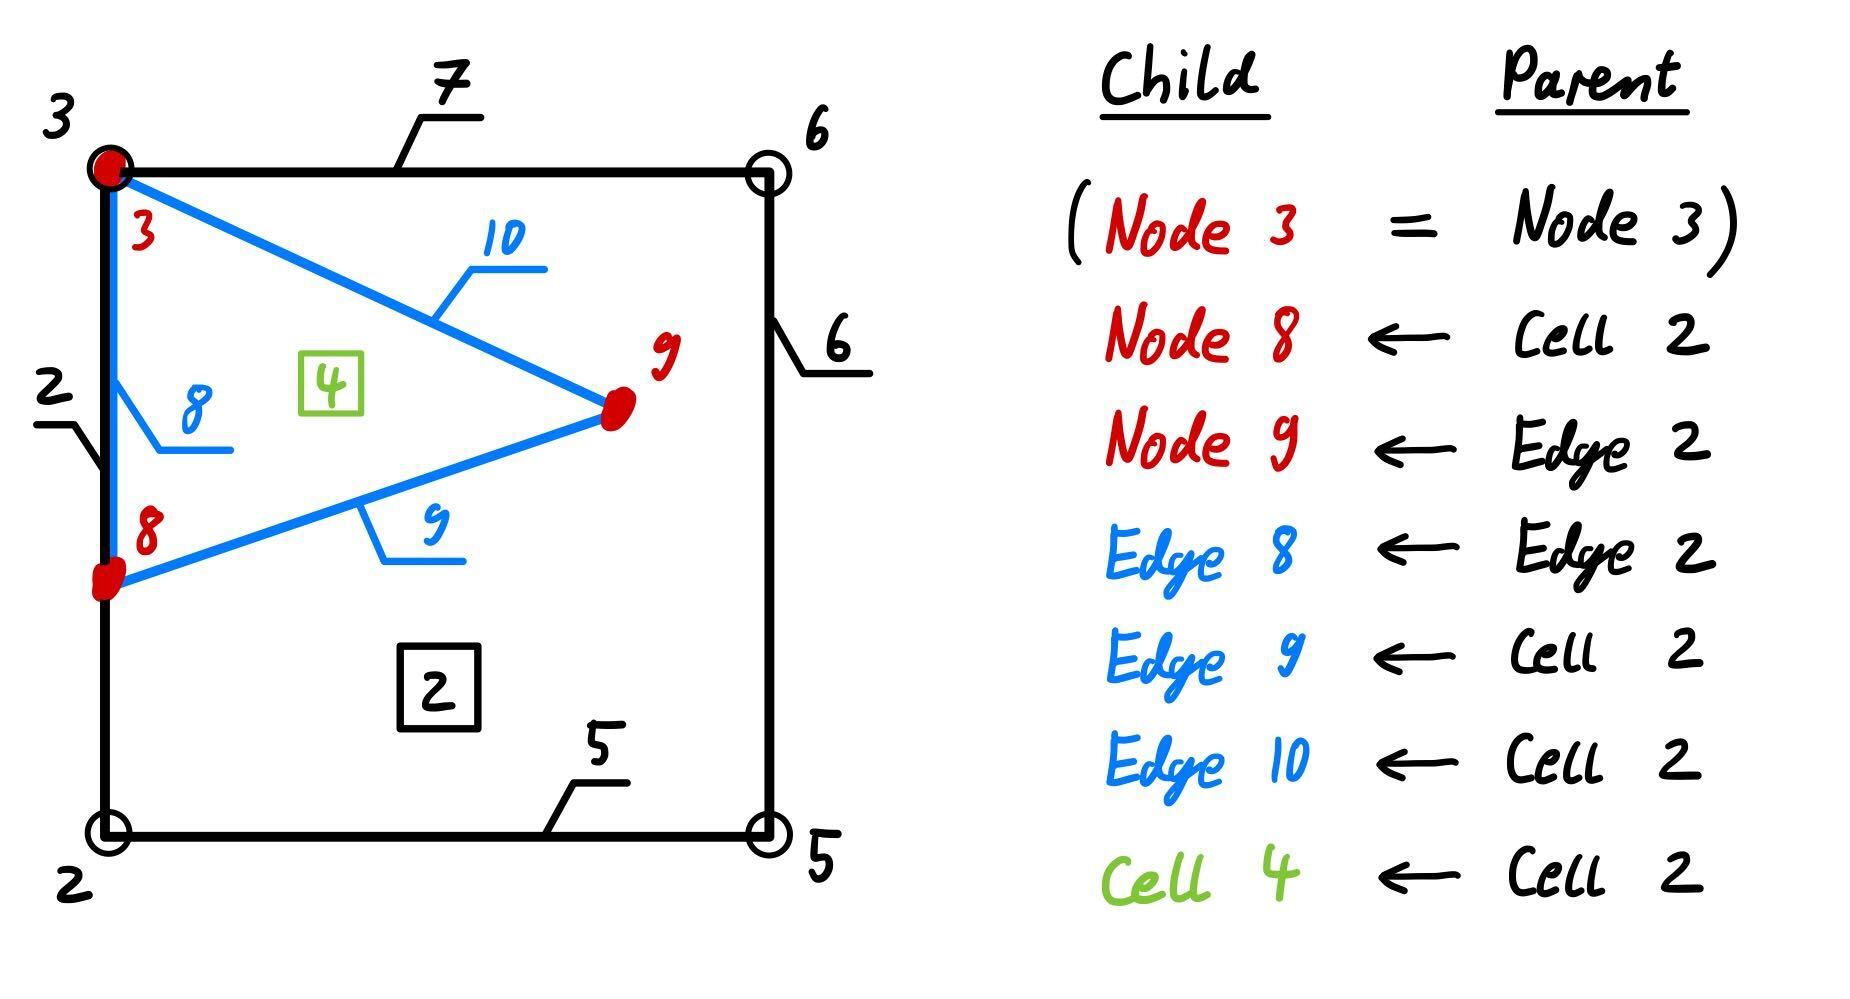 7
3
6
3
10
9
6
4
2
8
8
9
2
5
2
5
Child Parent
(Node 3 = Node 3)
Node 8 ← Cell 2
Node 9 ← Edge 2
Edge 8 ← Edge 2
Edge 9 ← Cell 2
Edge 10 ← Cell 2
Cell 4 ← Cell 2